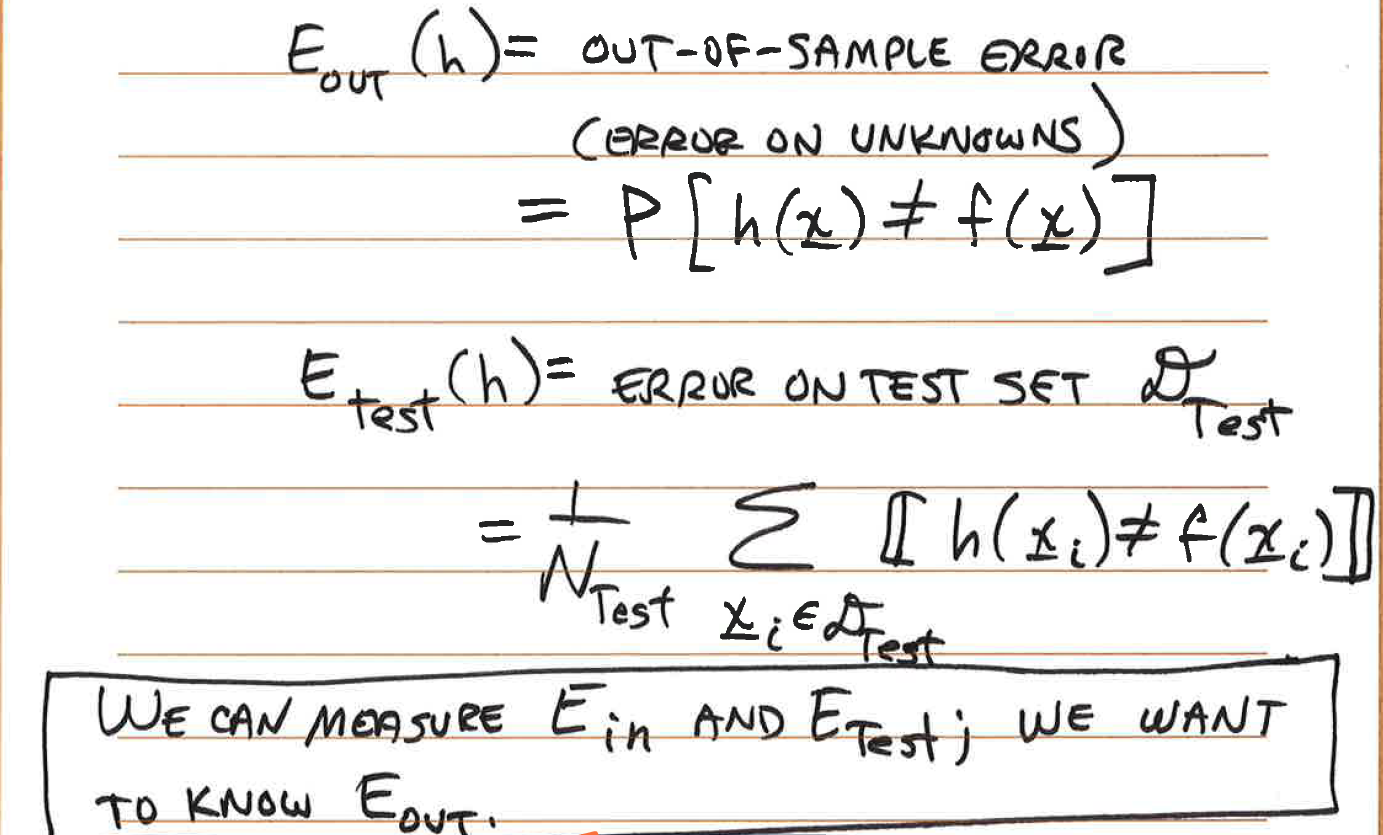 E_OUT (h) = OUT-OF-SAMPLE ERROR
(ERROR ON UNKNOWNS)
= P [h(x) ≠ f(x)]
E_test (h) = ERROR ON TEST SET 𝒟_Test
= 1/N_Test Σ_{x_i ∈ 𝒟_Test} ⟦h(x_i) ≠ f(x_i)⟧
WE CAN MEASURE E_in AND E_Test; WE WANT
TO KNOW E_OUT.